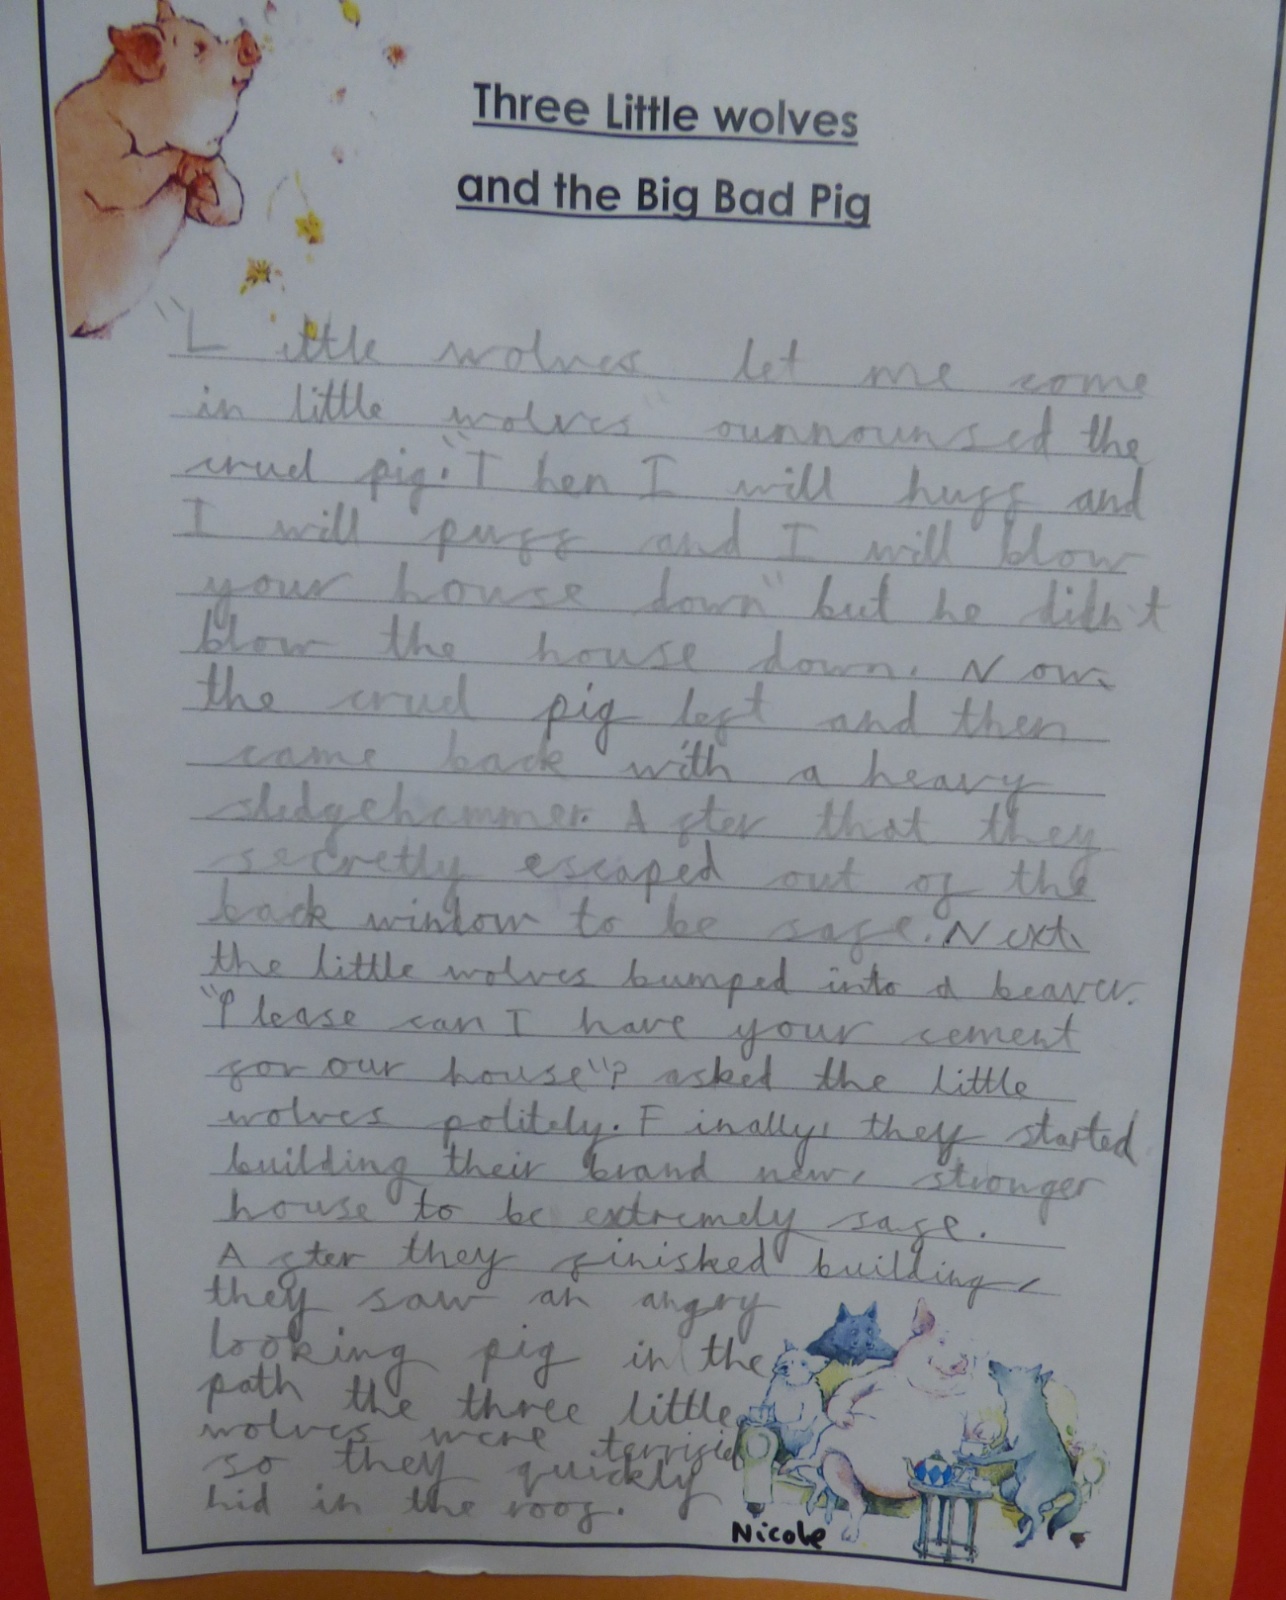 Three Little wolves
and the Big Bad Pig
"Little wolves let me come
in little wolves" ounnounsed the
cruel pig. "Then I will huff and
I will puff and I will blow
your house down" but he didn't
blow the house down. Now,
the cruel pig left and then
came back with a heavy
sledgehammer. After that they
secretly escaped out of the
back window to be safe. Next,
the little wolves bumped into a beaver.
"Please can I have your cement
for our house"? asked the little
wolves politely. Finally, they started
building their brand new, stronger
house to be extremely safe.
After they finished building,
they saw an angry
looking pig in the
path the three little
wolves were terrified
so they quickly
hid in the roof.
Nicole